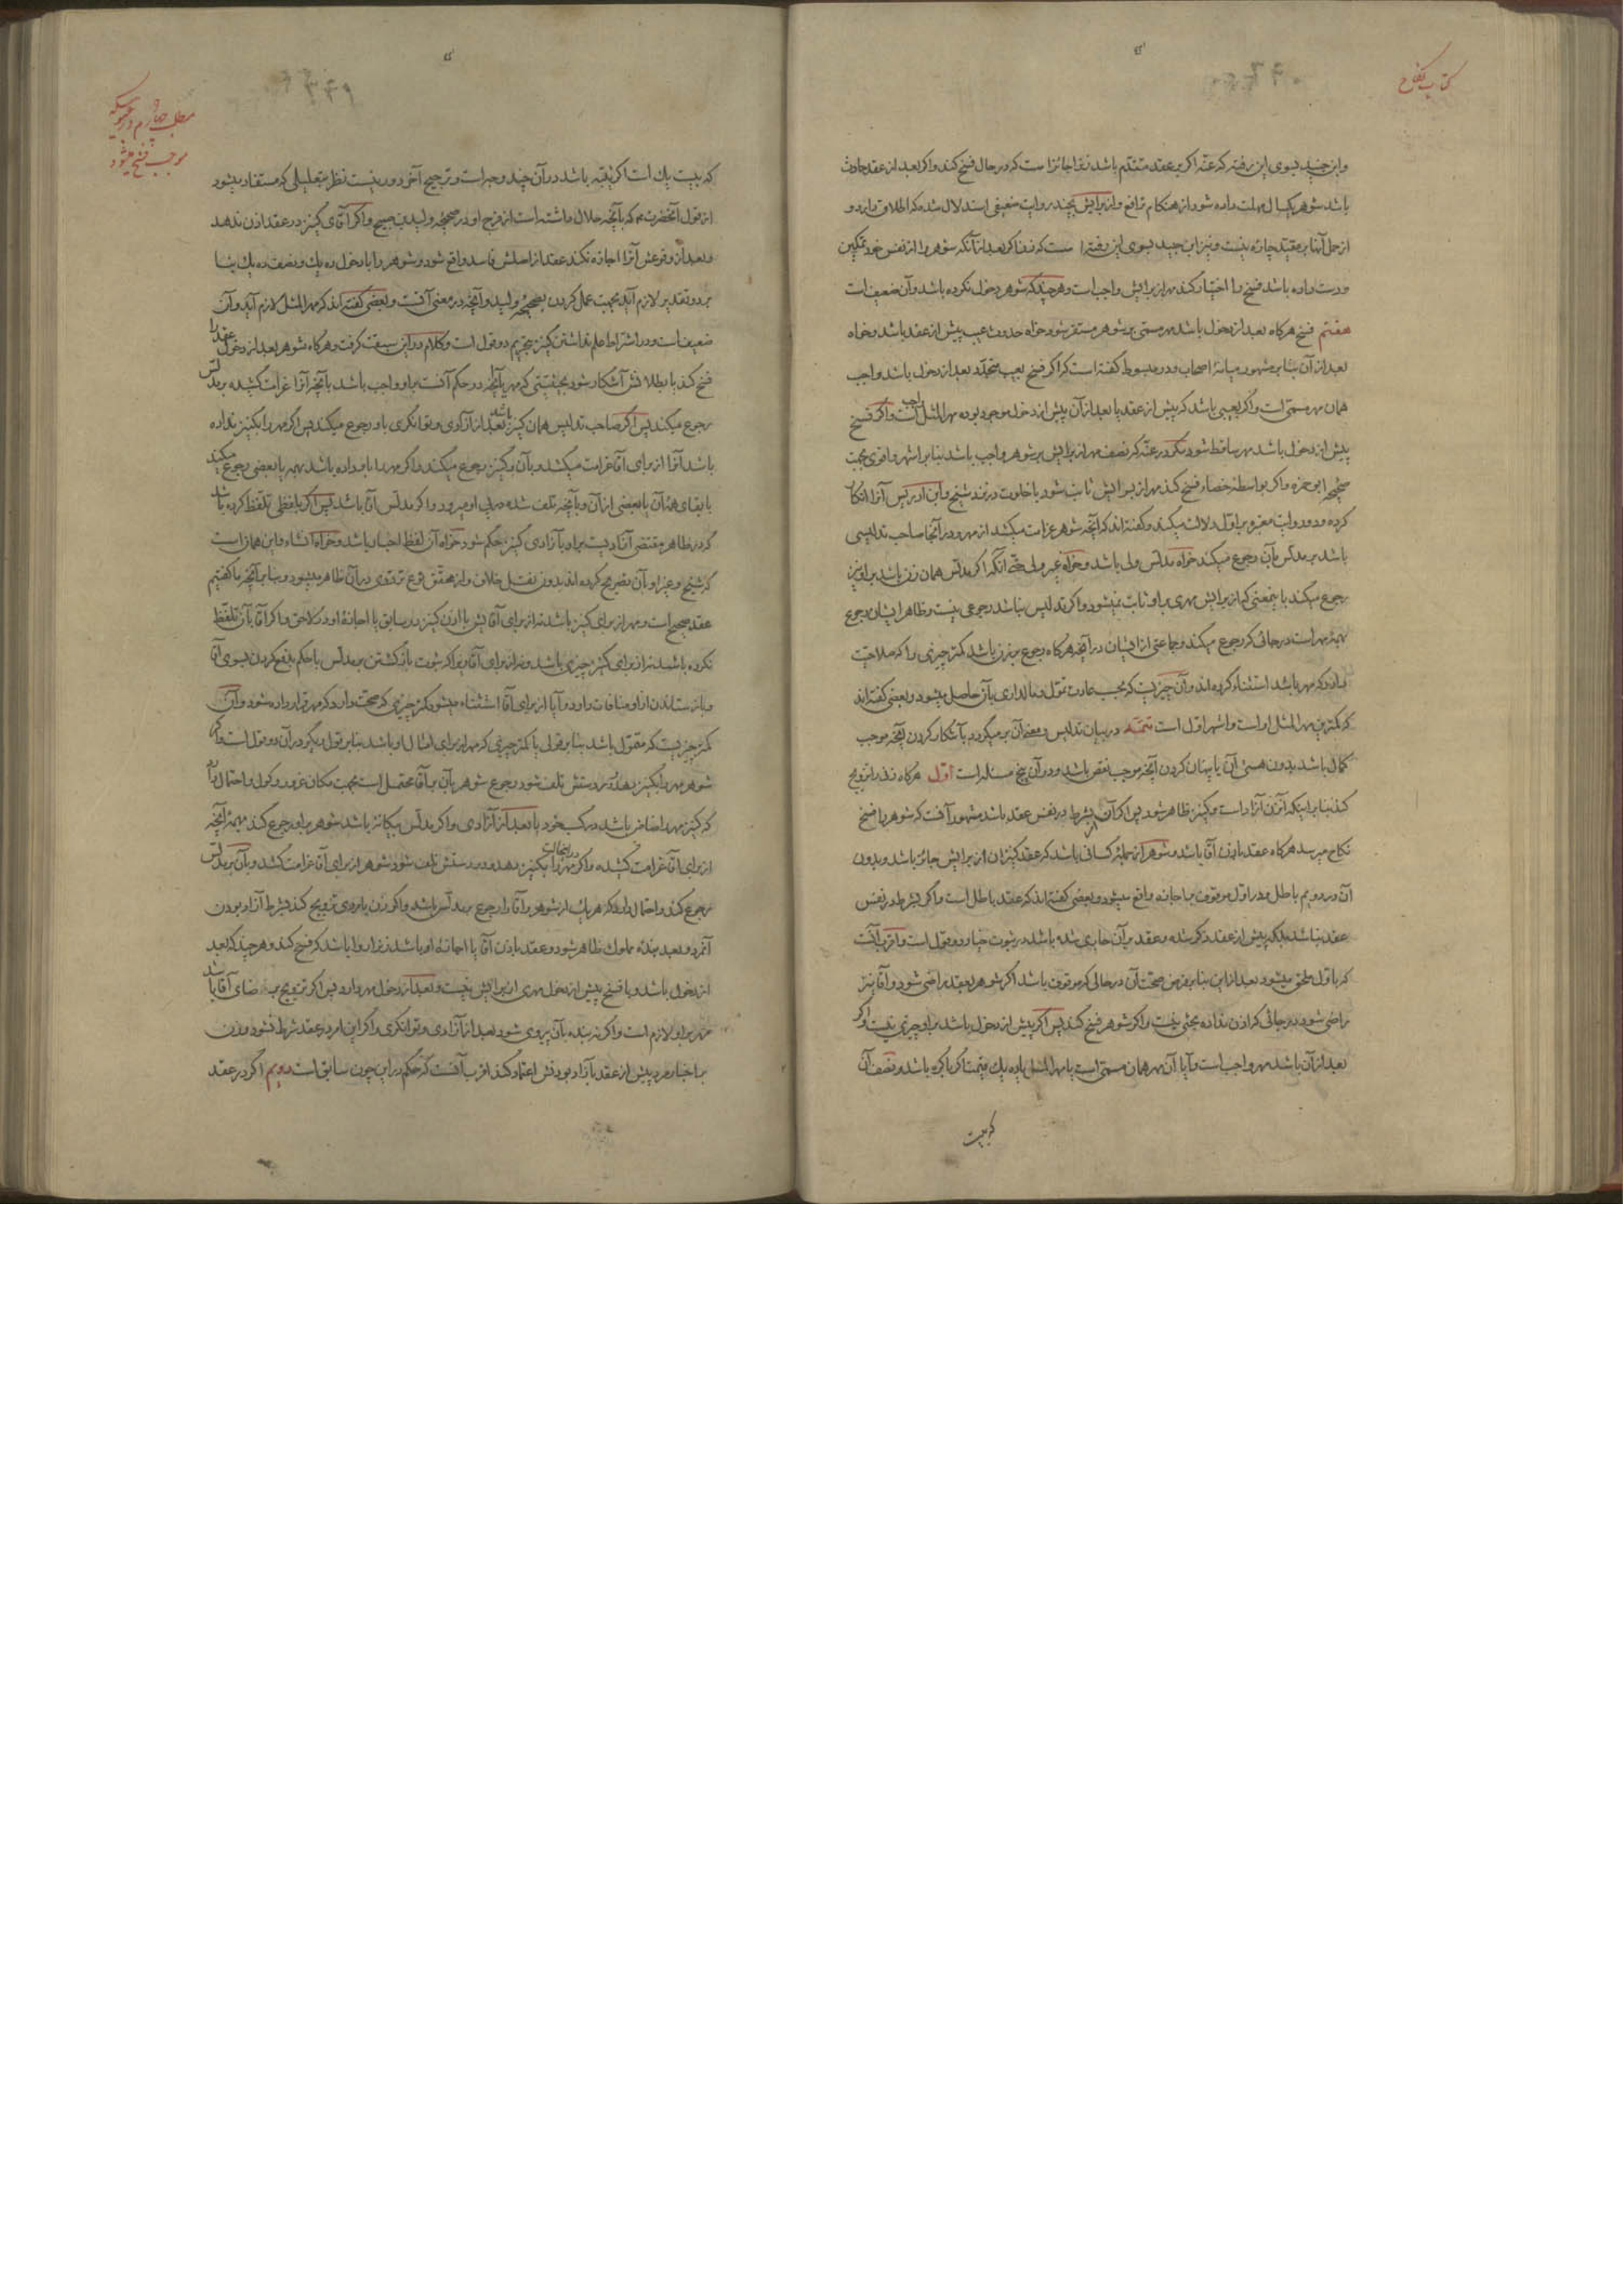 کتاب نکاح
وابن جنید بسوی این رفته که عنّه اگر بر عقد متقدّم باشد زنرا جائز است که در حال فسخ کند واگر بعد از عقد حادث
باشد شوهر یکسال مهلت داده شود از هنکام ترافع واز برایش بچند روایت ضعیفی استدلال شده که اطلاق دارد و
از حمل آنها بر مقیّد چاره نیست ونیز ابن جنید بسوی این رفته است که زن اگر بعد از آنکه شوهر را از نفس خود تمکین
ودست داده باشد فسخ را اختیار کند مهر از برایش واجب است وهر چند که شوهر دخول نکرده باشد وآن ضعیف است
هفتم فسخ هرکاه بعد از دخول باشد مهر مسمّی بر شوهر مستقر شود خواه حدوث عیب پیش از عقد باشد وخواه
بعد از آن بنابر مشهور میانهٔ اصحاب ودر مبسوط کفته است که اگر فسخ بعیب متجدّد بعد از دخول باشد واجب
همان مهر مسمّی است واگر بعیبی باشد که پیش از عقد یا بعد از آن پیش از دخول موجود بوده مهر المثل واجب است واگر فسخ
پیش از دخول باشد مهر ساقط شود مگر در عنّه که نصف مهر از برایش بر شوهر واجب باشد بنابر اشهر واقوی بجهت
صحیحهٔ ابو حمزه واگر بواسطهٔ خصاء فسخ کند مهر از برایش ثابت شود با خلوت در نزد شیخ وابن ادریس آنرا انکار
کرده ودو روایت معتبره بر اوّل دلالت میکند وکفته‌اند که آنچه شوهر غرامت میکشد از مهر ودر آنجا صاحب تدلیسی
باشد بر مدلّس بآن رجوع میکند خواه مدلّس ولی باشد وخواه غیر ولی حتّی آنکه اگر مدلّس همان زن باشد بر او نیز
رجوع میکند باینمعنی که از برایش مهری بر او ثابت نمیشود واگر تدلیس نباشد رجوعی نیست وظاهر ایشان رجوع
بهمهٔ مهر است در جائی که رجوع میکند وجماعتی از ایشان در آنچه هرکاه رجوع بر زن باشد کمتر چیزی را که صلاحیت
دارد که مهر باشد استثناء کرده‌اند وآن چیزیست که بحسب عادت تموّل ومالداری بآن حاصل میشود وبعضی کفته‌اند
که کمترین مهر المثل او است واشهر اوّل است تتمّه در بیان تدلیس ومعنی آن بر میگردد بآشکار کردن آنچه موجب
کمال باشد بدون هستی آن یا پنهان کردن آنچه موجب نقص باشد ودر آن پنج مسئله است اوّل هرکاه زنرا تزویج
کند بنابر اینکه آنزن آزاد است وکنیز ظاهر شود پس اگر آن بشرط در نفس عقد باشد مشهور آنست که شوهر را فسخ
نکاح میرسد هرکاه عقد باذن آقا باشد وشوهر از جملهٔ کسانی باشد که عقد کنیزان از برایش جائز باشد وبدون
آن در دویم باطل ودر اوّل موقوف بر اجازه واقع میشود وبعضی کفته‌اند که عقد باطل است واگر بشرط در نفس
عقد نباشد بلکه پیش از عقد ذکر شده وعقد بر آن جاری شده باشد در ثبوت خیار دو قول است واقرب آنست
که باوّل ملحق میشود بعد از این بنابر فرض صحّت آن در حالی که موقوف باشد اگر شوهر بعقد راضی شود وآقا نیز
راضی شود در جائی که اذن نداده بحثی نیست واگر شوهر فسخ کند پس اگر پیش از دخول باشد بر او چیزی نیست واگر
بعد از آن باشد مهر واجب است وآیا آن مهر همان مسمّی است یا مهر المثل یا ده یک قیمت اگر باکره باشد ونصف آن
که بیست
مطلب چهارم در عیوبیکه
موجب فسخ میشود
که بیست یک است اگر ثیّبه باشد در آن چند وجه است وترجیح آخر دور نیست نظر بتعلیلی که مستفاد میشود
از قول آنحضرت که بآنچه حلال داشته است از فرج او در صحیحهٔ ولید بن صبیح واگر آقای کنیز در عقد اذن ندهد
وبعد از وقوعش آنرا اجازه نکند عقد از اصلش فاسد واقع شود وشوهر را با دخول ده یک ونصف ده یک بنا
بر دو تقدیر لازم آید بجهت عمل کردن بصحیحهٔ ولید وآنچه در معنی آنست وبعضی کفته‌اند که مهر المثل لازم آید وآن
ضعیف است ودر اشتراط علم نداشتن کنیز بتحریم دو قول است وکلام در این سبقت کرفت وهرکاه شوهر بعد از دخول عقد را
فسخ کند یا بطلانش آشکار شود بحیثیتی که مهر یا آنچه در حکم آنست بر او واجب باشد یا آنچه آنرا غرامت کشیده بر مدلّس
رجوع میکند پس اگر صاحب تدلیس همان کنیز باشد بعد از آزادی وتوانگری باو رجوع میکند پس اگر مهر را بکنیز نداده
باشد آنرا از برای آقا غرامت میکشد وبآن بر کنیز رجوع میکند واگر مهر را باو داده باشد بهمه یا بعضی رجوع میکند
با بقای همهٔ آن یا بعضی از آن وبآنچه تلف شده در پی او میرود واگر مدلّس آقا باشد پس اگر بلفظی تلفّظ کرده باشد
که در ظاهر مقتضی آزادیست بر او بآزادی کنیز حکم شود خواه آن لفظ اخبار باشد وخواه انشاء واین همان است
که شیخ وغیر او بآن تصریح کرده‌اند بدون نقل خلاف واز محقّق نوع تردّدی در آن ظاهر میشود وبنابر آنچه ما کفتیم
عقد صحیح است ومهر از برای کنیز باشد نه از برای آقایش با اذن کنیز در سابق یا اجازهٔ او در لاحق واگر آقا بآن تلفّظ
نکرده باشد نه از برای کنیز چیزی باشد ونه از برای آقا چرا که ثبوت بازکشتن بر مدلّس با حکم بدفع کردن بسوی آقا
وباز ستاندن از او منافات دارد وآیا از برای آقا استثناء میشود کمتر چیزی که صحّت دارد که مهر قرار داده شود وآن
کمتر چیزیست که متموّل باشد بنابر قولی یا کمتر چیزی که مهر از برای امثال او باشد بنابر قول دیگر در آن دو قول است واگر
شوهر مهر را بکنیز بدهد ودر دستش تلف شود رجوع شوهر بآن بر آقا محتمل است بجهت مکان غرور وکول واحتمال دارد
که کنیز مهر را ضامن باشد در کسب خود یا بعد از آزادی واگر مدلّس بیگانه باشد شوهر بر او رجوع کند بهمهٔ آنچه
از برای آقا غرامت کشیده واگر مهر را در اینحالت بکنیز بدهد ودر دستش تلف شود شوهر از برای آقا غرامت کشد وبآن بر مدلّس
رجوع کند واحتمال دارد که هر یک از شوهر وآقا را رجوع بمدلّس باشد واگر زن با مردی تزویج کند بشرط آزاد بودن
آنمرد وبعد بندهٔ مملوک ظاهر شود وعقد باذن آقا یا اجازهٔ او باشد زنرا روا باشد که فسخ کند وهر چند که بعد
از دخول باشد وبا فسخ پیش از دخول مهری از برایش نیست وبعد از دخول مهر دارد پس اگر تزویج برضای آقا باشد
مهر بر او لازم است واگر نه ببنده بآن پیروی شود بعد از آزادی وتوانگری واگر این امر در عقد شرط نشود وزن
بر اخبار مرد پیش از عقد بآزاد بودنش اعتماد کند اقرب آنست که حکم در این چون سابق است دویم اگر در عقد